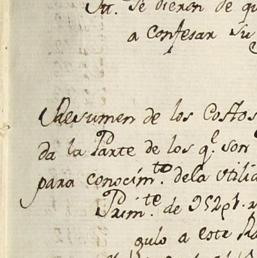 se dieron de
a confesar su
Resumen de los Costos
da la Parte de los q.ͤ son
para conocim.ᵗᵒ dela utilid
Prim.ᵗᵉ de
gulo a este